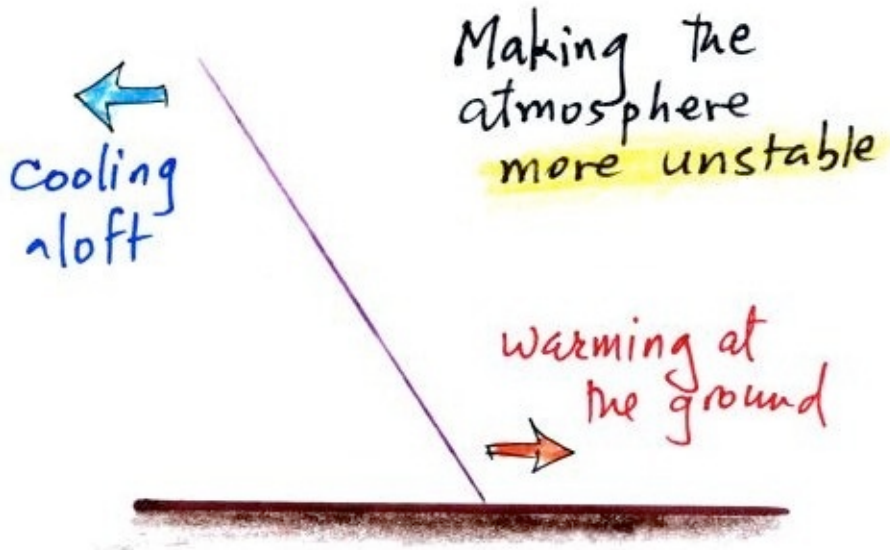 Making the
atmosphere
more unstable
Cooling
aloft
warming at
the ground